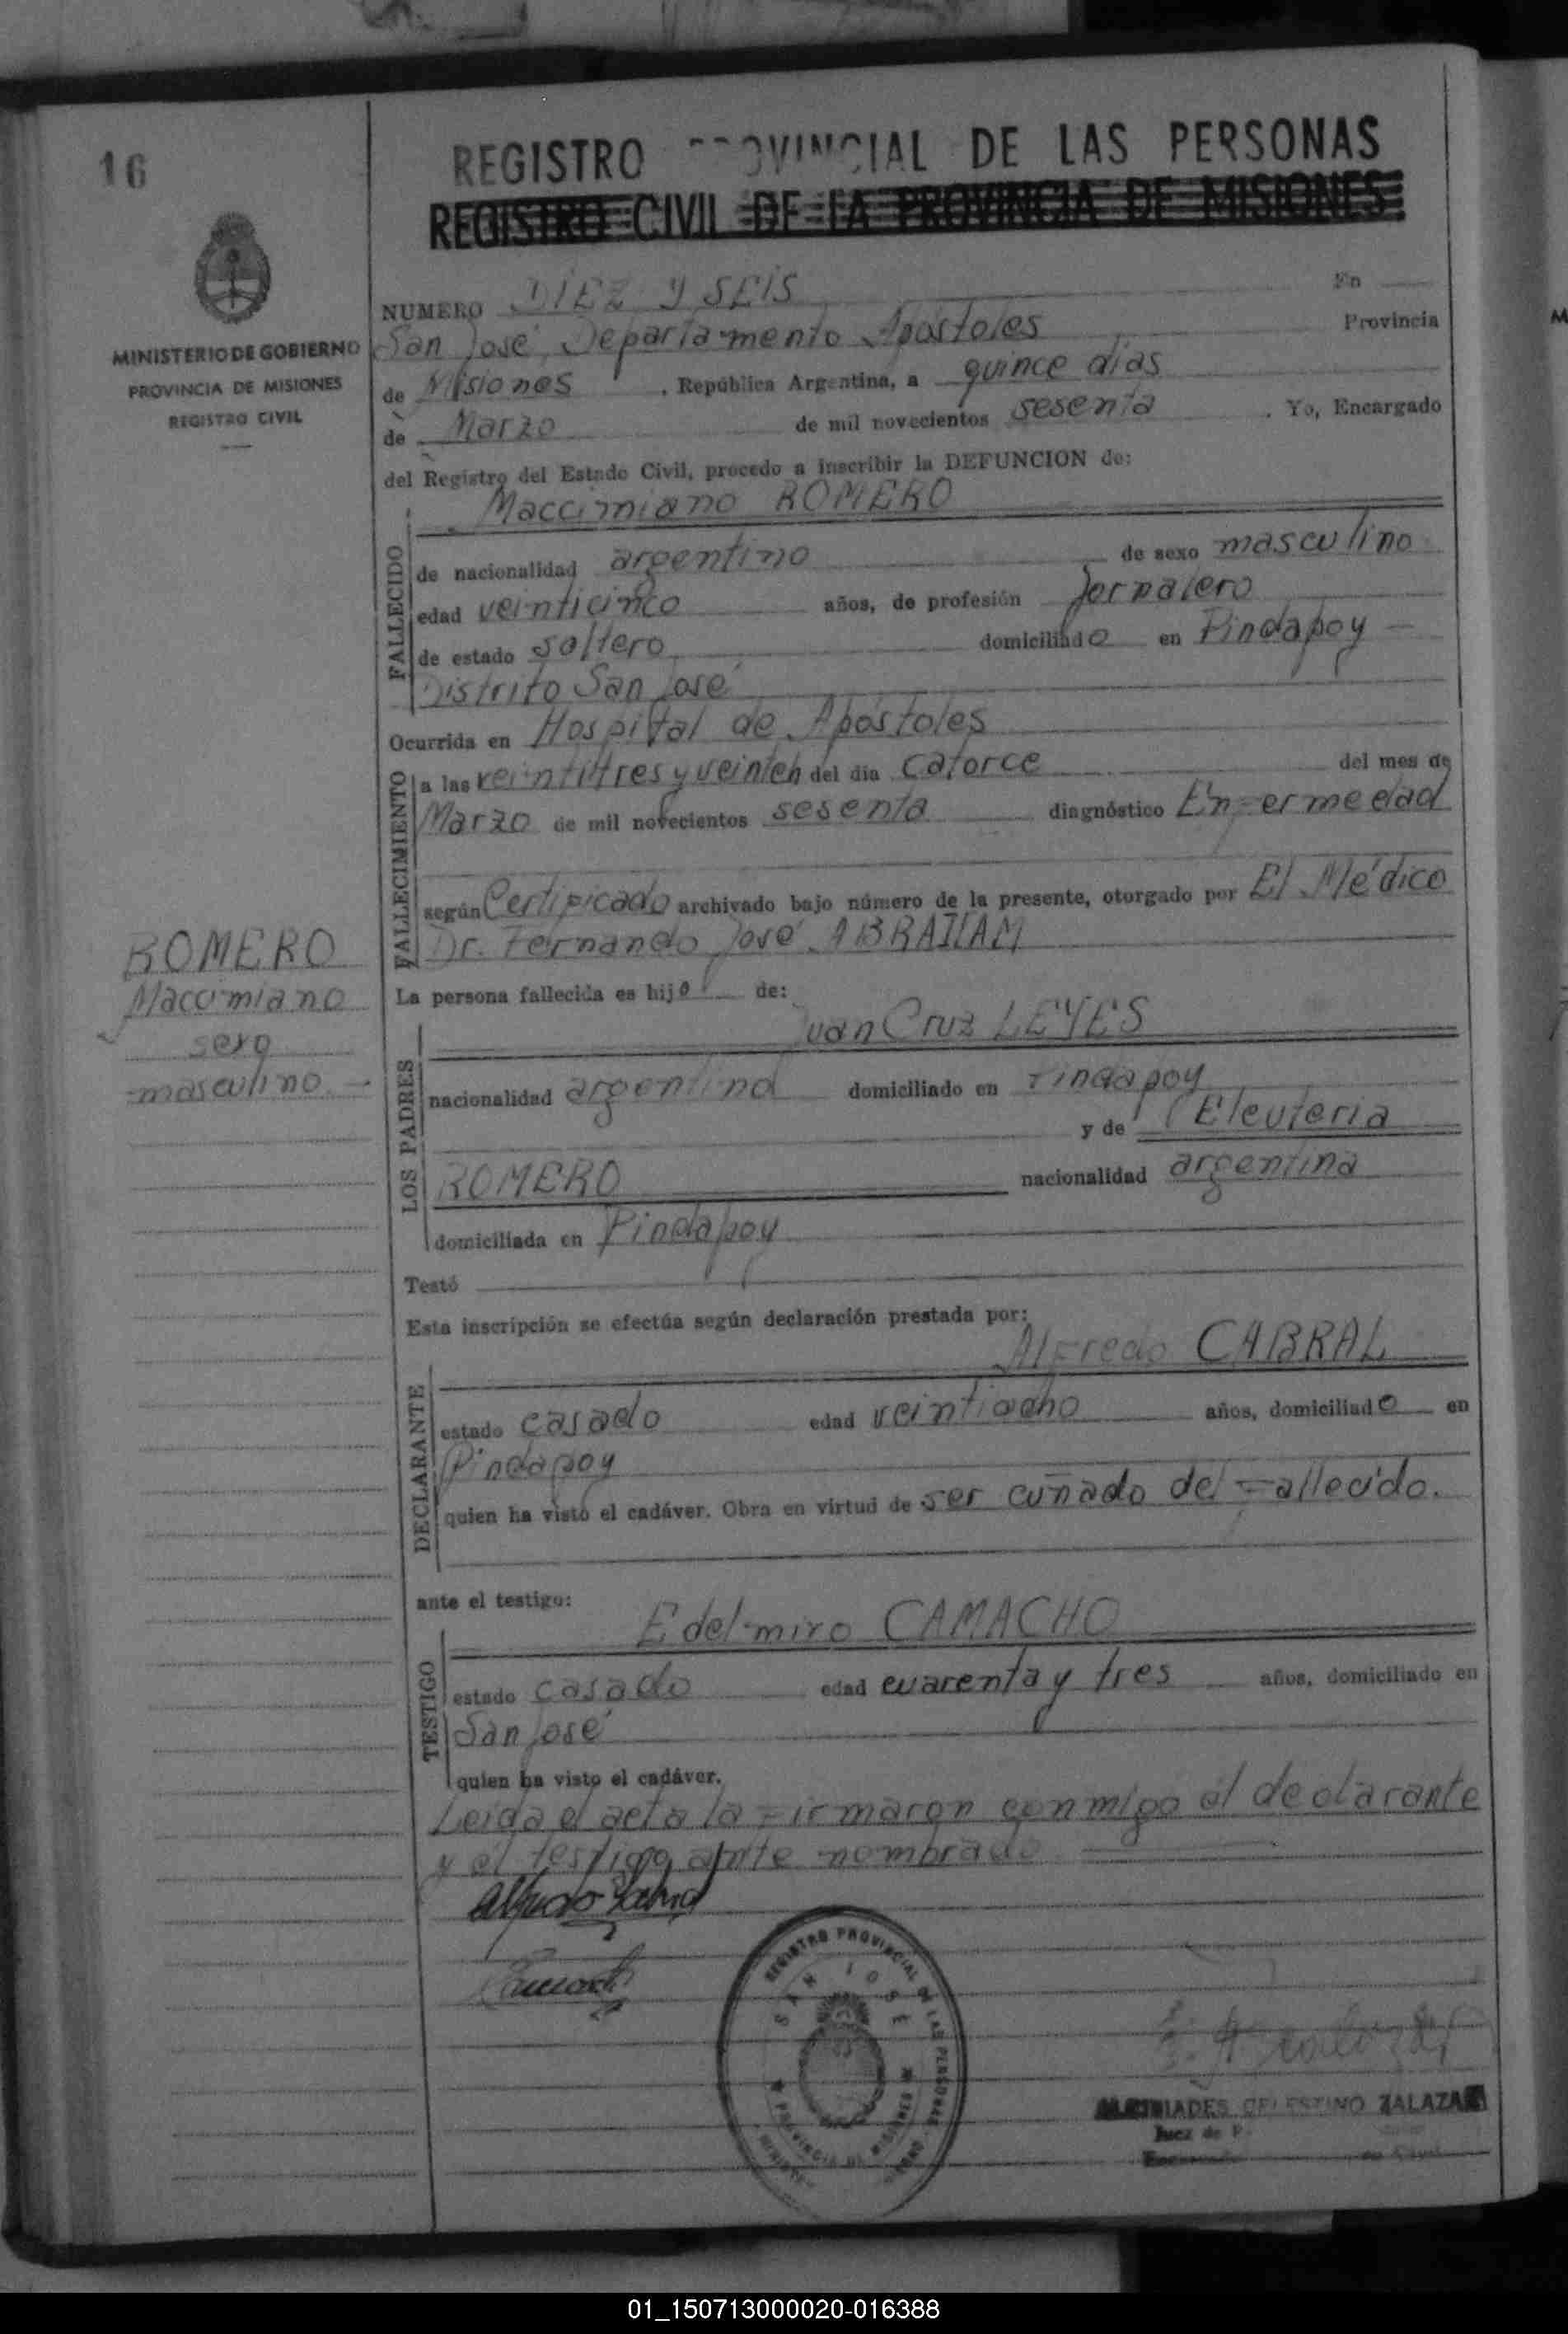 16
REGISTRO PROVINCIAL DE LAS PERSONAS
REGISTRO CIVIL DE LA PROVINCIA DE MISIONES
MINISTERIO DE GOBIERNO
PROVINCIA DE MISIONES
REGISTRO CIVIL
NUMERO DIEZ Y SEIS En
San José Departamento Apóstoles Provincia
de Misiones, República Argentina, a quince días
de Marzo de mil novecientos sesenta. Yo, Encargado
del Registro del Estado Civil, procedo a inscribir la DEFUNCION de:
Maccimiano ROMERO
FALLECIDO
de nacionalidad argentino de sexo masculino
edad veinticinco años, de profesión Jornalero
de estado soltero domiciliado en Pindapoy
Distrito San José
Ocurrida en Hospital de Apóstoles
FALLECIMIENTO
a las veintitres y veinteh del día catorce del mes de
Marzo de mil novecientos sesenta diagnóstico Enfermedad
según Certificado archivado bajo número de la presente, otorgado por El Médico
Dr. Fernando José ABRAHAM
ROMERO
Maccimiano
sexo
masculino.-
La persona fallecida es hijo de:
Juan Cruz LEYES
LOS PADRES
nacionalidad argentina domiciliado en Pindapoy
y de Eleuteria
ROMERO nacionalidad argentina
domiciliada en Pindapoy
Testó
Esta inscripción se efectúa según declaración prestada por:
Alfredo CABRAL
DECLARANTE
estado casado edad veintiocho años, domiciliado en
Pindapoy
quien ha visto el cadáver. Obra en virtud de ser cuñado del fallecido.
ante el testigo:
Edelmiro CAMACHO
TESTIGO
estado casado edad cuarenta y tres años, domiciliado en
San José
quien ha visto el cadáver.
Leida el acta la firmaron conmigo el declarante
y el testigo ante nombrado
Alfredo Cabral
Camacho
REGISTRO PROVINCIAL DE LAS PERSONAS
SAN JOSE
PROVINCIA DE MISIONES
CELESTINO ZALAZAR
Juez de P
01_150713000020-016388